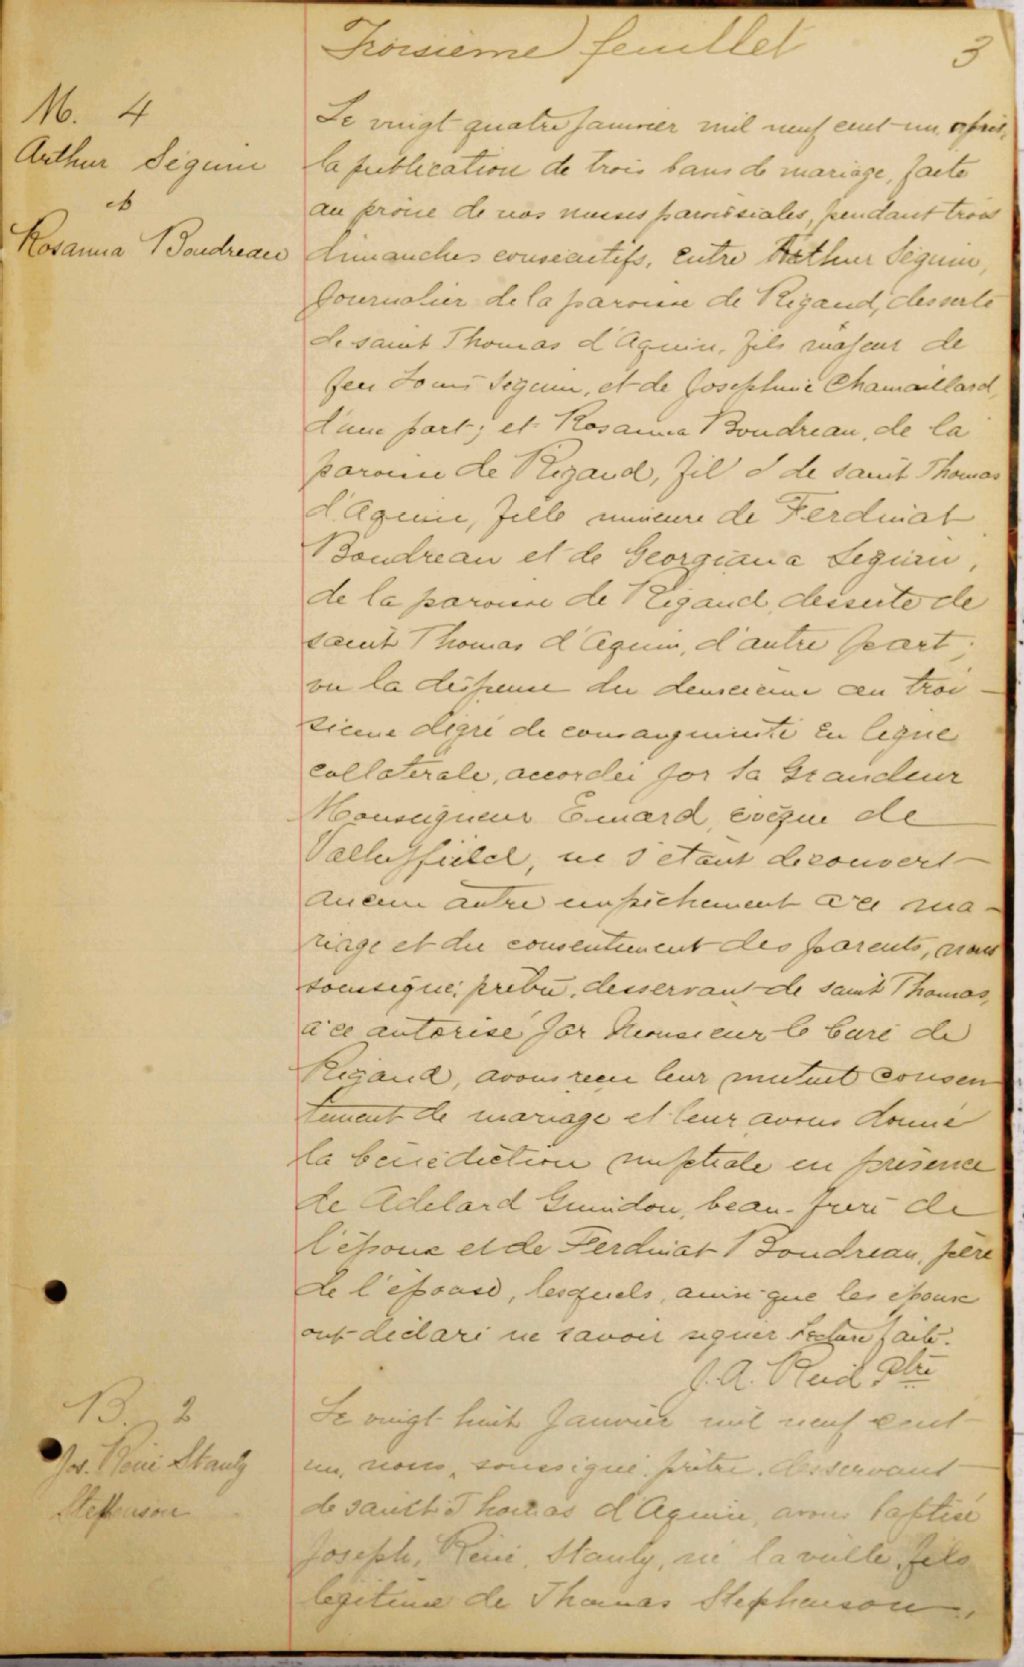 Troisième feuillet 3
M. 4
Arthur Séguin
et
Rosanna Boudreau
Le vingt quatre Janvier mil neuf cent un, après,
la publication de trois bans de mariage, faite
au prône de nos messes paroissiales, pendant trois
dimanches consécutifs, entre Arthur Séguin,
Journalier de la paroisse de Rigaud, desserte
de saint Thomas d'Aquin, fils majeur de
feu Louis Séguin, et de Josephine Chamaillard,
d'une part; et Rosanna Boudreau, de la
paroisse de Rigaud, de saint Thomas
d'Aquin, fille mineure de Ferdinat
Boudreau et de Georgiana Seguin,
de la paroisse de Rigaud, desserte de
saint Thomas d'Aquin, d'autre part;
vu la dispense du deuxième au troi-
sième degré de consanguinité en ligne
collatérale, accordée par Sa Grandeur
Monseigneur Emard, évêque de
Valleyfield, ne s'étant découvert
aucun autre empêchement à ce ma-
riage et du consentement des parents, nous
soussigné, prêtre, desservant de saint Thomas,
à ce autorisé par Monsieur le Curé de
Rigaud, avons reçu leur mutuel consen-
tement de mariage et leur avons donné
la bénédiction nuptiale en présence
de Adelard Guindon, beau-frère de
l'époux et de Ferdinat Boudreau, père
de l'épouse, lesquels, ainsi que les époux
ont déclaré ne savoir signer Lecture faite.
J. A. Reid Ptre
B. 2
Jos. René Stanly
Stephenson
Le vingt huit Janvier mil neuf cent
un, nous, soussigné prêtre, desservant
de saint Thomas d'Aquin, avons baptisé
Joseph, René, Stanly, né la veille, fils
légitime de Thomas Stephenson,